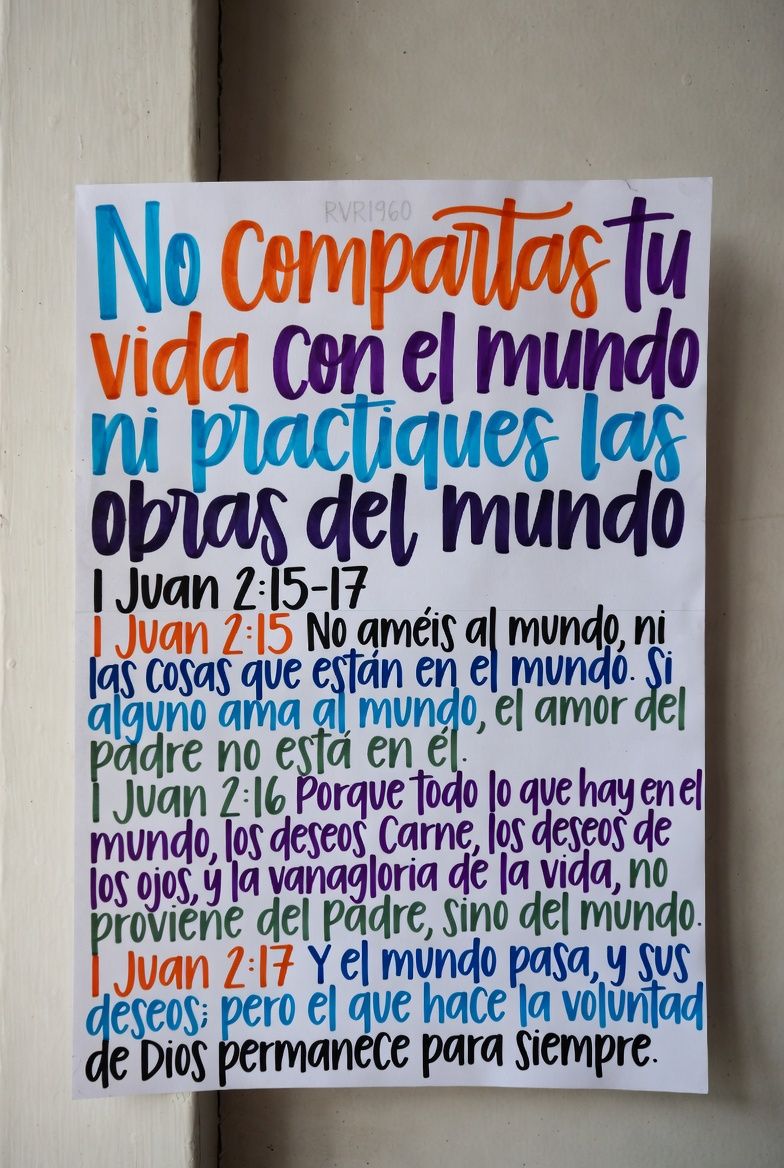 RVR1960
No Compartas tu
vida con el mundo
ni practiques las
obras del mundo
1 Juan 2:15-17
1 Juan 2:15 No améis al mundo, ni
las cosas que están en el mundo. Si
alguno ama al mundo, el amor del
padre no está en él.
1 Juan 2:16 Porque todo lo que hay en el
mundo, los deseos Carne, los deseos de
los ojos, y la vanagloria de la vida, no
proviene del Padre, sino del mundo.
1 Juan 2:17 Y el mundo pasa, y sus
deseos; pero el que hace la voluntad
de Dios permanece para siempre.